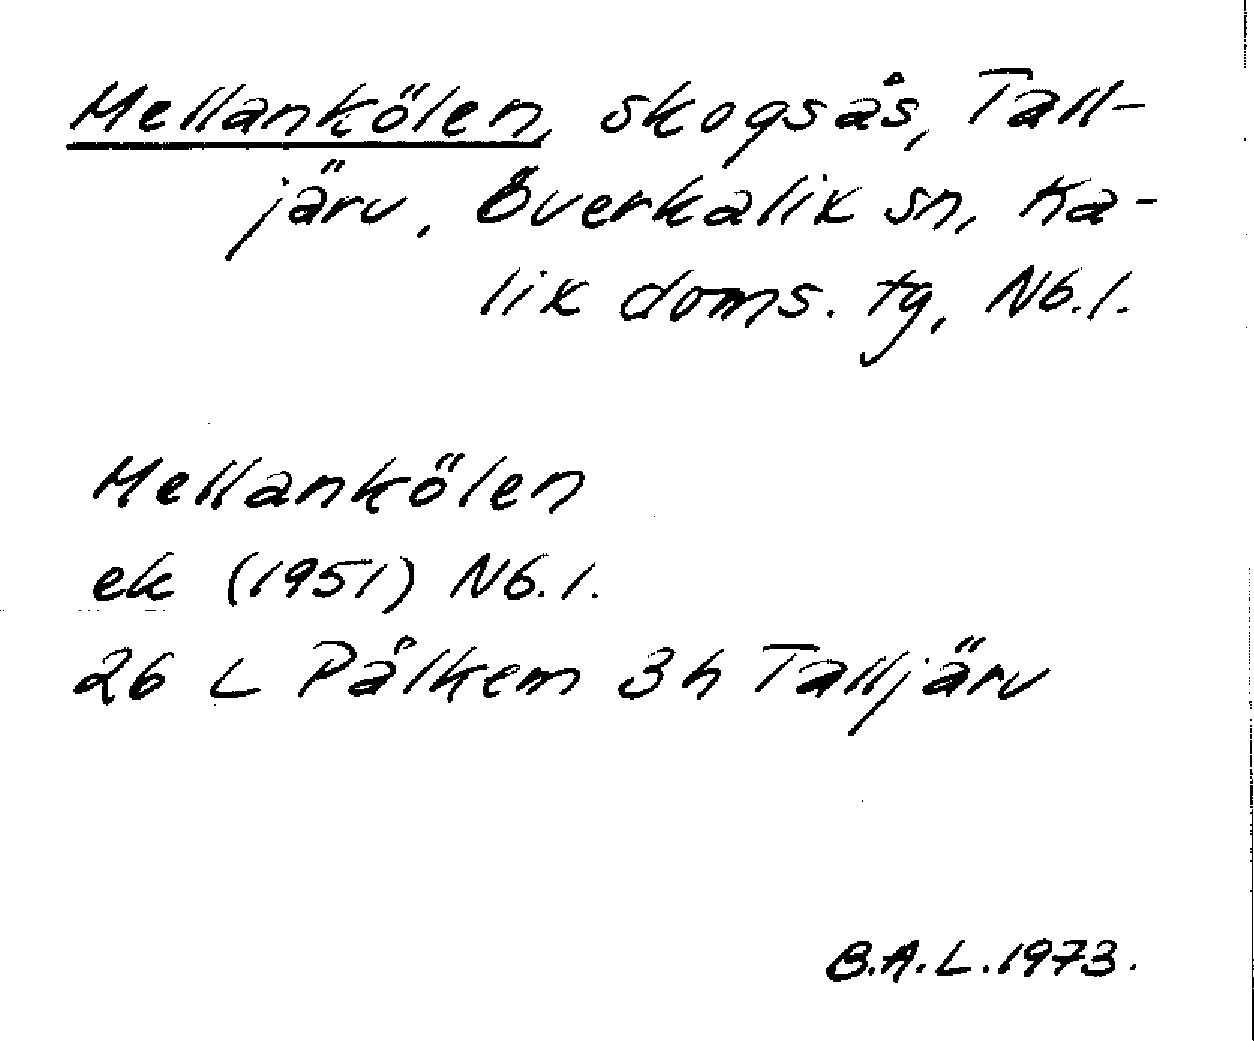 Mellankölen, skogsås, Tall-
järv, Överkalix sn, Ka-
lix doms. tg, Nb.l.
Mellankölen
ek (1951) Nb.l.
26 L Pålkem 3h Talljärv
B.A.L. 1973.